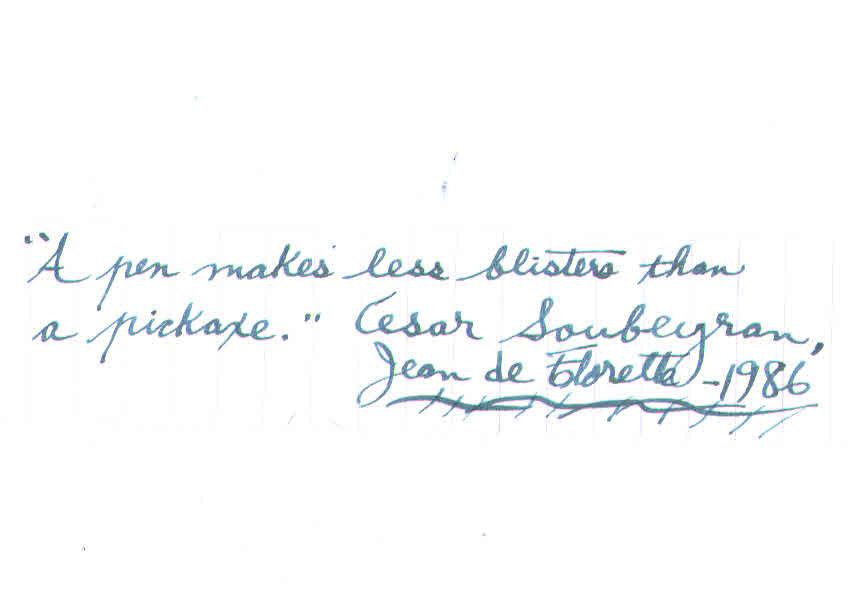 "A pen makes less blisters than
a pickaxe." Cesar Soubeyran,
Jean de Floretta - 1986